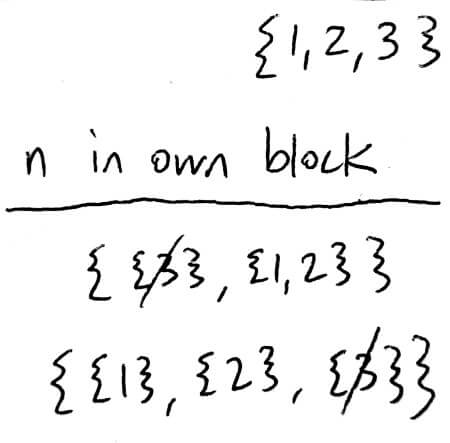 {1,2,3}
n in own block
{ {3}, {1,2} }
{ {1}, {2}, {3}}